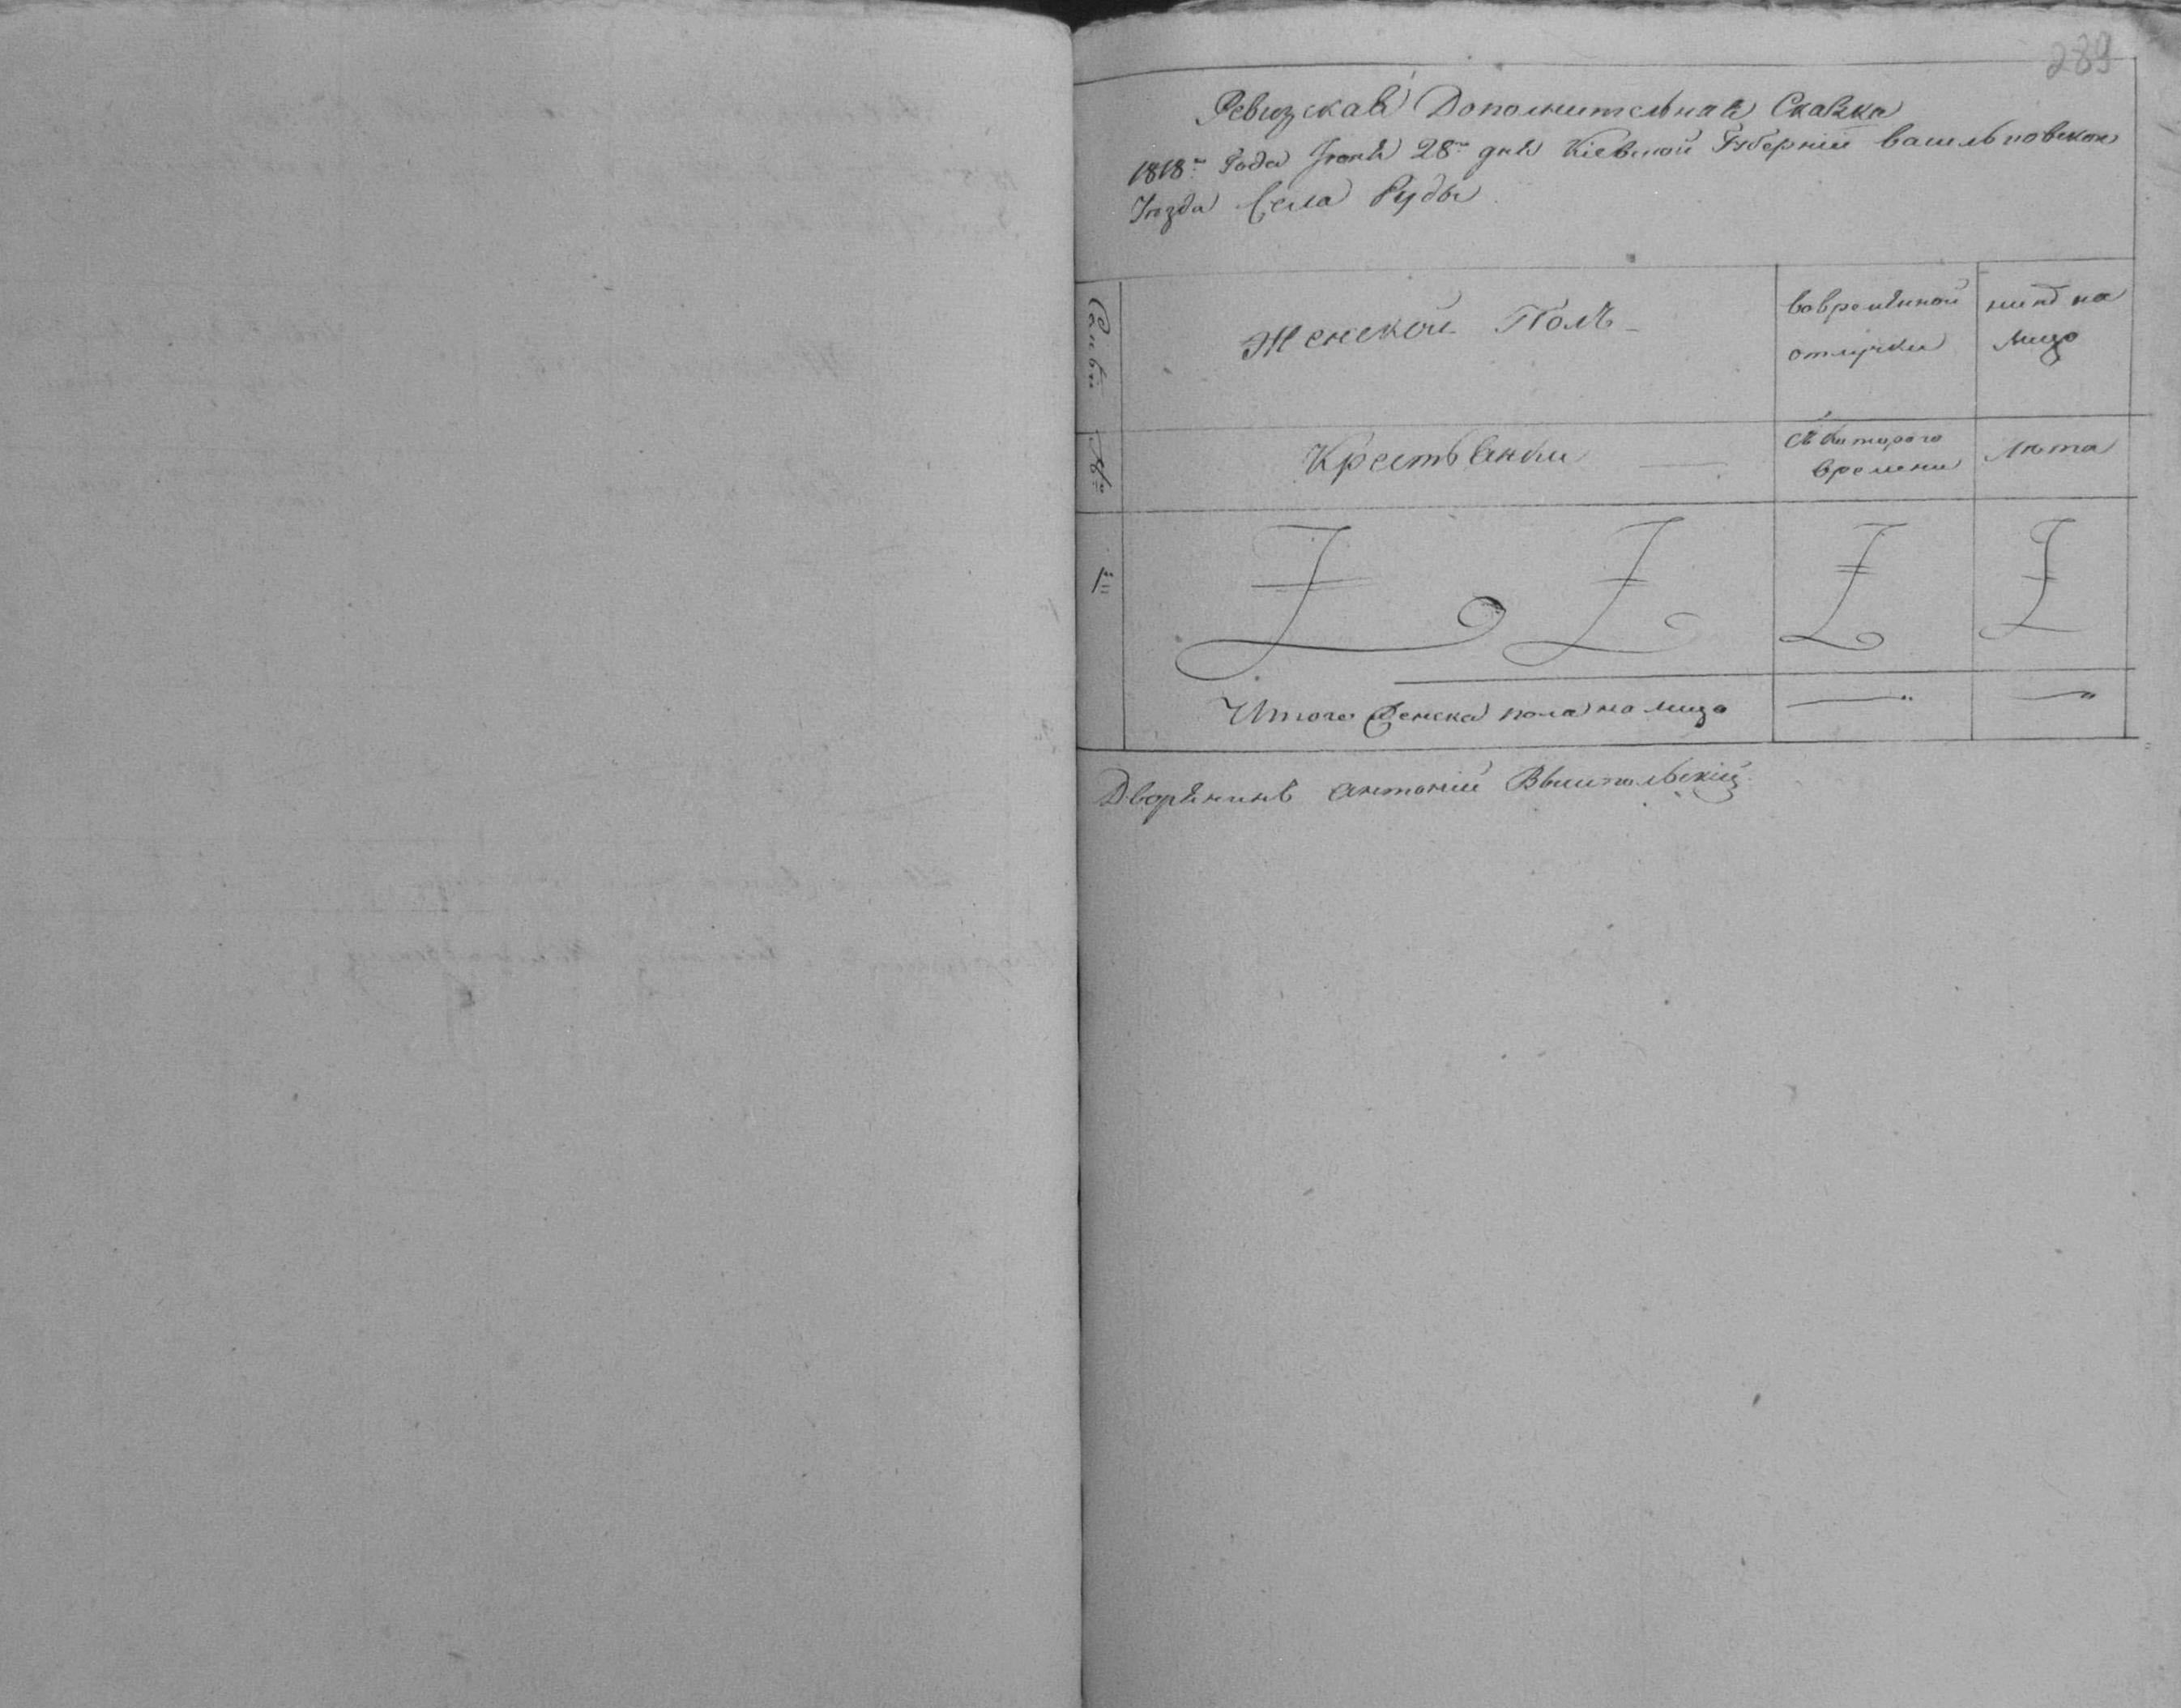 289
Ревизская Дополнительная Сказка
1818го Года Іюня 28го дня Кіевской Губерніи васильковскои
Уезда Села Руды
Семьи Женской Полъ вовременной отлучки нинѣ на лицо
№ Крестьянки съ которого времени лѣта
1
Итого женска пола на лицо
Дворянинъ Антоній Вышпольскій